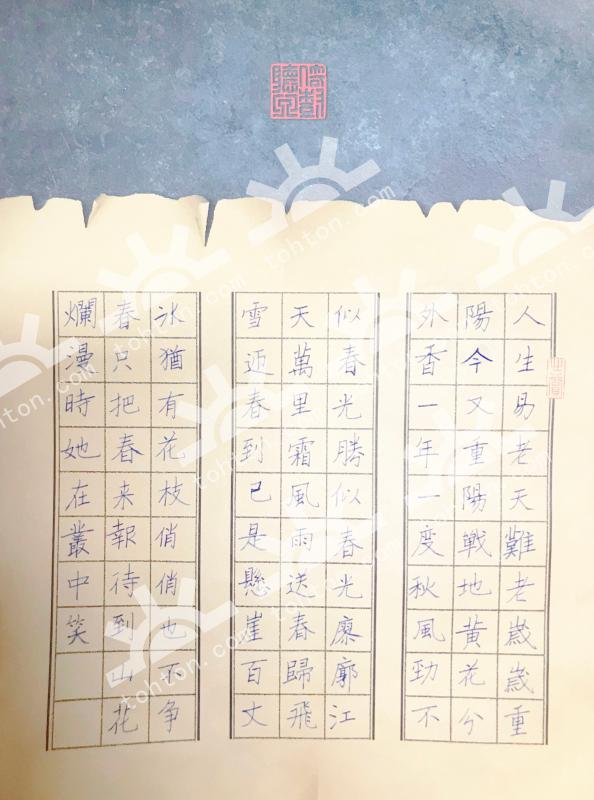 人生易老天難老歲歲重
陽今又重陽戰地黃花分
外香一年一度秋風勁不
似春光勝似春光廖廓江
天萬里霜風雨送春歸飛
雪迎春到已是懸崖百丈
冰猶有花枝俏俏也不争
春只把春来報待到山花
爛漫時她在叢中笑
tohton.com